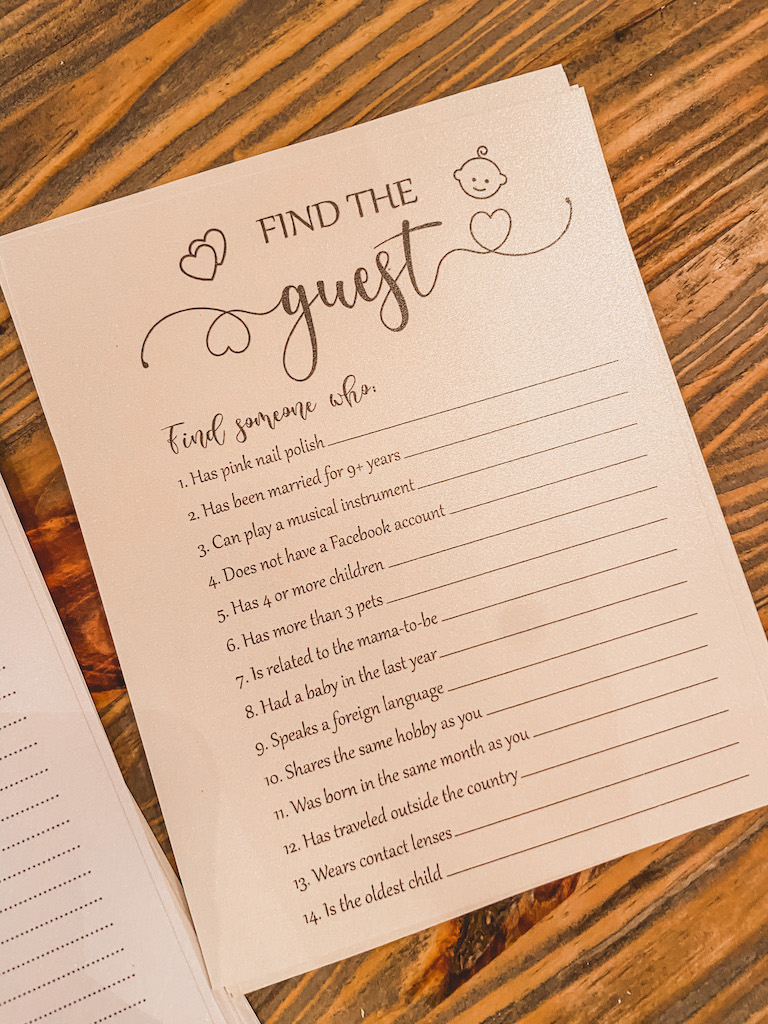 FIND THE
guest
Find someone who:
1. Has pink nail polish
2. Has been married for 9+ years
3. Can play a musical instrument
4. Does not have a Facebook account
5. Has 4 or more children
6. Has more than 3 pets
7. Is related to the mama-to-be
8. Had a baby in the last year
9. Speaks a foreign language
10. Shares the same hobby as you
11. Was born in the same month as you
12. Has traveled outside the country
13. Wears contact lenses
14. Is the oldest child